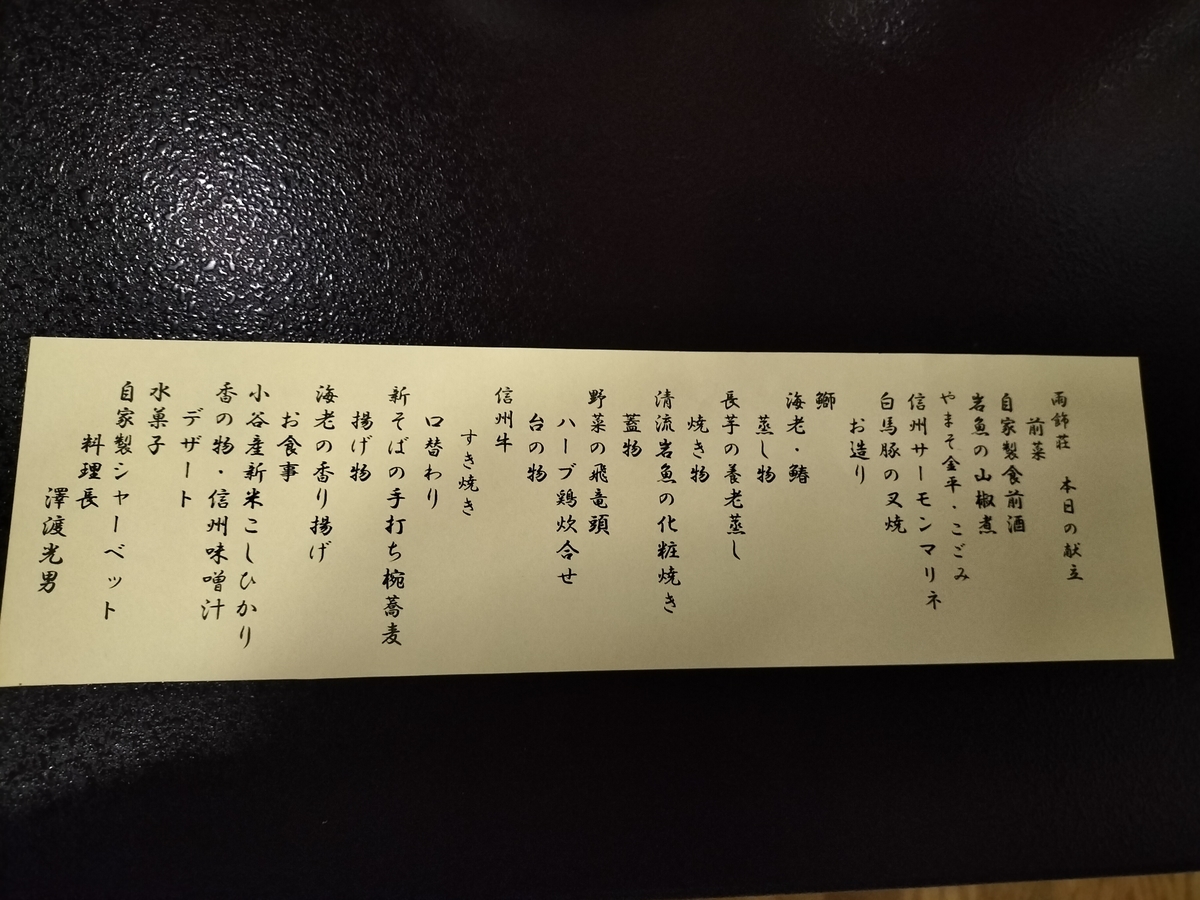 雨飾荘　本日の献立
前菜
自家製食前酒
岩魚の山椒煮
やまそ金平・こごみ
信州サーモンマリネ
白馬豚の叉焼
お造り
鰤
海老・鰆
蒸し物
長芋の養老蒸し
焼き物
清流岩魚の化粧焼き
蓋物
野菜の飛竜頭
ハーブ鶏炊合せ
台の物
信州牛
すき焼き
口替わり
新そばの手打ち椀蕎麦
揚げ物
海老の香り揚げ
お食事
小谷産新米こしひかり
香の物・信州味噌汁
デザート
水菓子
自家製シャーベット
料理長
澤渡光男